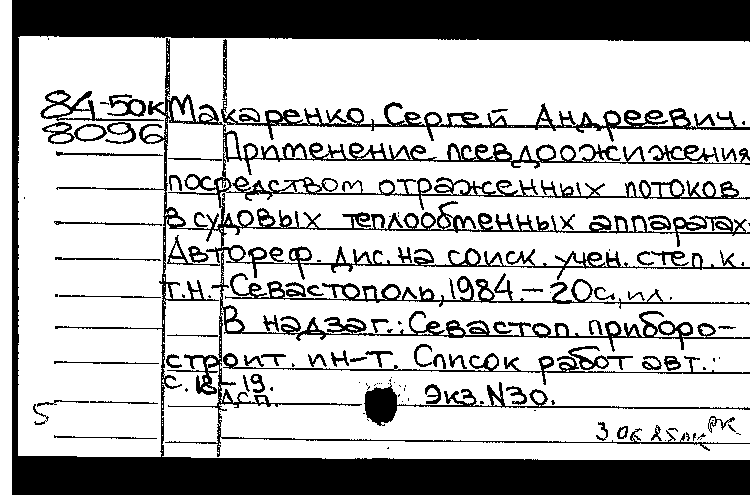 84-50к Макаренко, Сергей Андреевич.
8096 Применение псевдоожижения
посредством отраженных потоков
в судовых теплообменных аппаратах.
Автореф. дис. на соиск. учен. степ. к.
т.н.-Севастополь, 1984.-20с., ил.
В надзаг.: Севастоп. приборо-
строит. ин-т. Список работ авт.:
с. 18-19.
ДСП. Экз.N30.
5